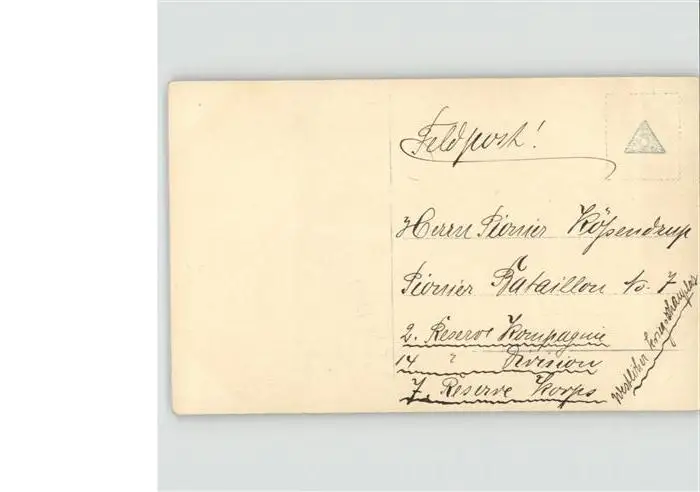 Feldpost!
Herrn Pionier Kößendrup
Pionier Bataillon No. 7
2. Reserve Kompagnie
14 " Division
7. Reserve Korps
Westlicher Kriegsschauplatz